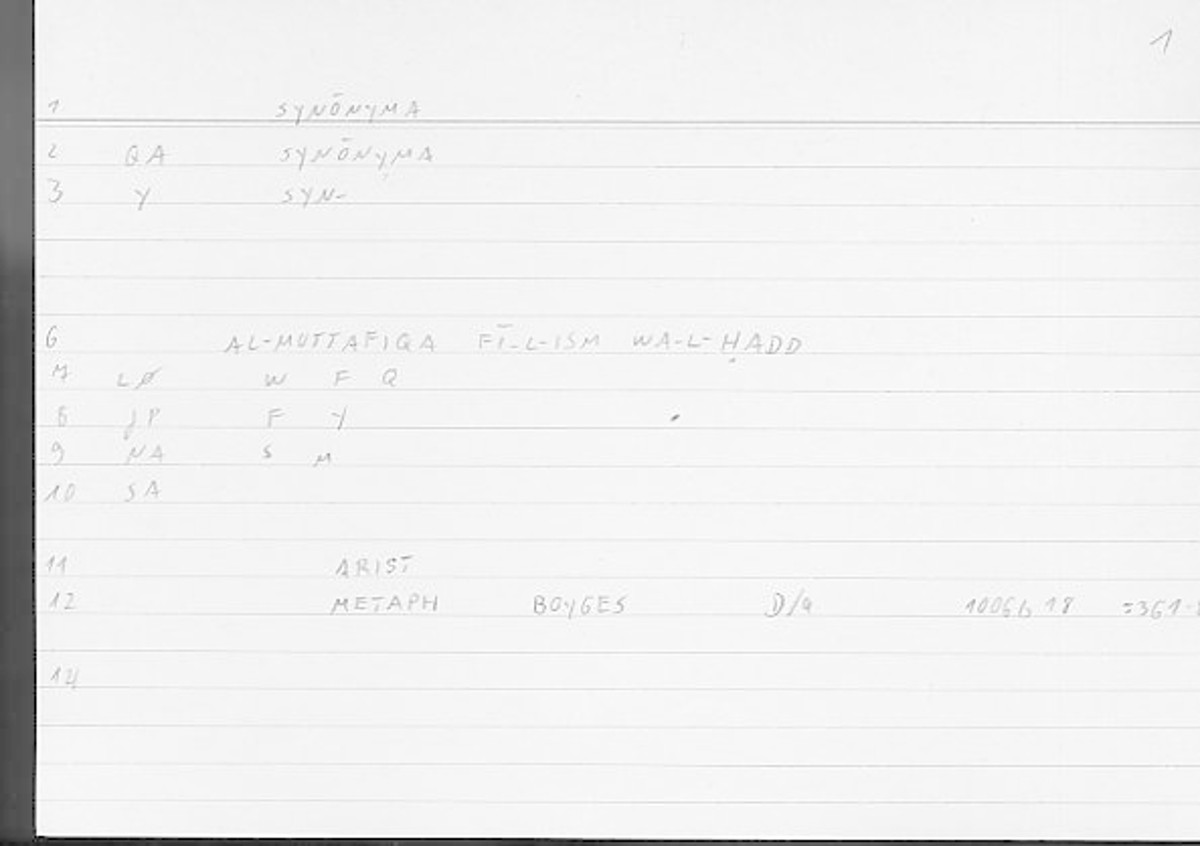 1
1 SYNŌNYMA
2 QA SYNŌNYMA
3 Y SYN-
6 AL-MUTTAFIQA FĪ-L-ISM WA-L-ḤADD
7 LØ W F Q
8 JP F Y
9 NA S M
10 SA
11 ARIST
12 METAPH BOYGES D/a 1006b 18 =361.
14